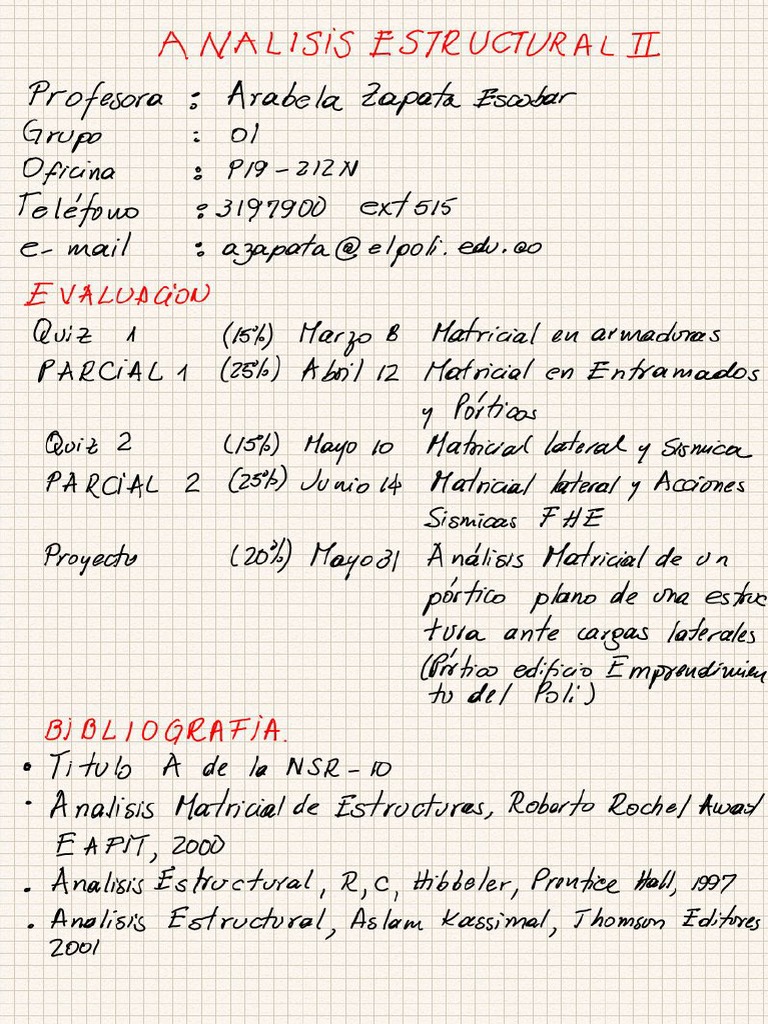 ANALISIS ESTRUCTURAL II
Profesora : Arabela Zapata Escobar
Grupo : 01
Oficina : P19-212N
Teléfono : 3197900 ext 515
e-mail : azapata@elpoli.edu.co
EVALUACION
Quiz 1 (15%) Marzo 8 Matricial en armaduras
PARCIAL 1 (25%) Abril 12 Matricial en Entramados
y Pórticos
Quiz 2 (15%) Mayo 10 Matricial lateral y Sismica
PARCIAL 2 (25%) Junio 14 Matricial lateral y Acciones
Sismicas FHE
Proyecto (20%) Mayo 31 Análisis Matricial de un
pórtico plano de una estruc
tura ante cargas laterales
(Pórtico edificio Emprendimien
to del Poli)
BIBLIOGRAFIA.
• Titulo A de la NSR-10
• Analisis Matricial de Estructuras, Roberto Rochel Awad
EAFIT, 2000
• Analisis Estructural, R, C, Hibbeler, Prentice Hall, 1997
• Analisis Estructural, Aslam Kassimal, Thomson Editores
2001